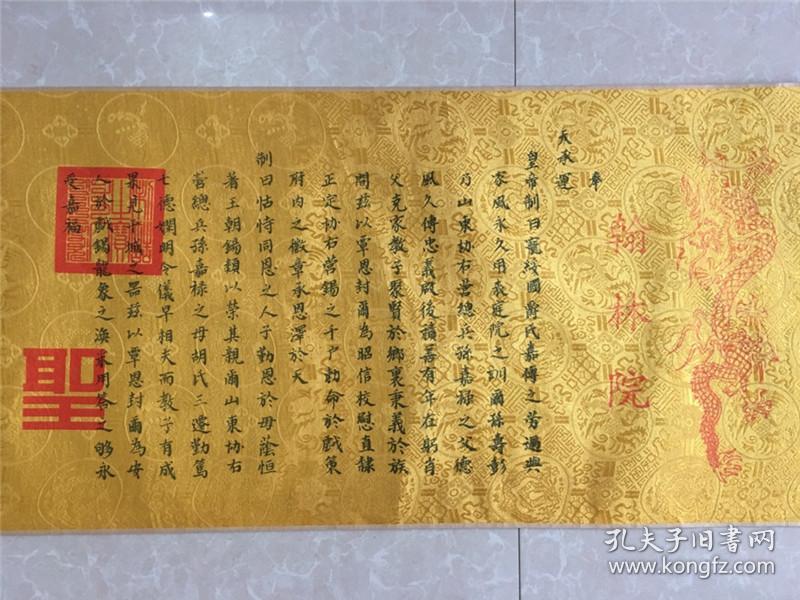 翰林院
奉
天承運
皇帝制曰寵綏國爵氏嘉傳之芳過與
家風永久用表庭院之訓爾孫壽彭
乃山東協右營總兵孫嘉祿之父德
風久傳忠義啟後積善有年在躬肖
父克家教子聚賢於鄉裏秉義於族
間茲以覃恩封爾為昭信校慰直隸
正定協右營錫之千戶勅命於戲策
府内之徽章承恩澤於天
制曰怙恃同恩之人子勤恩於毋蔭恒
著王朝錫類以榮其親爾山東協右
營總兵孫嘉祿之母胡氏三遷勤篤
七德嫻明令儀早相夫而教子有成
果見干城之器茲以覃恩封爾為安
人於戲錫龍象之渙永用答之够永
受嘉福
聖
孔夫子旧書网
www.kongfz.com